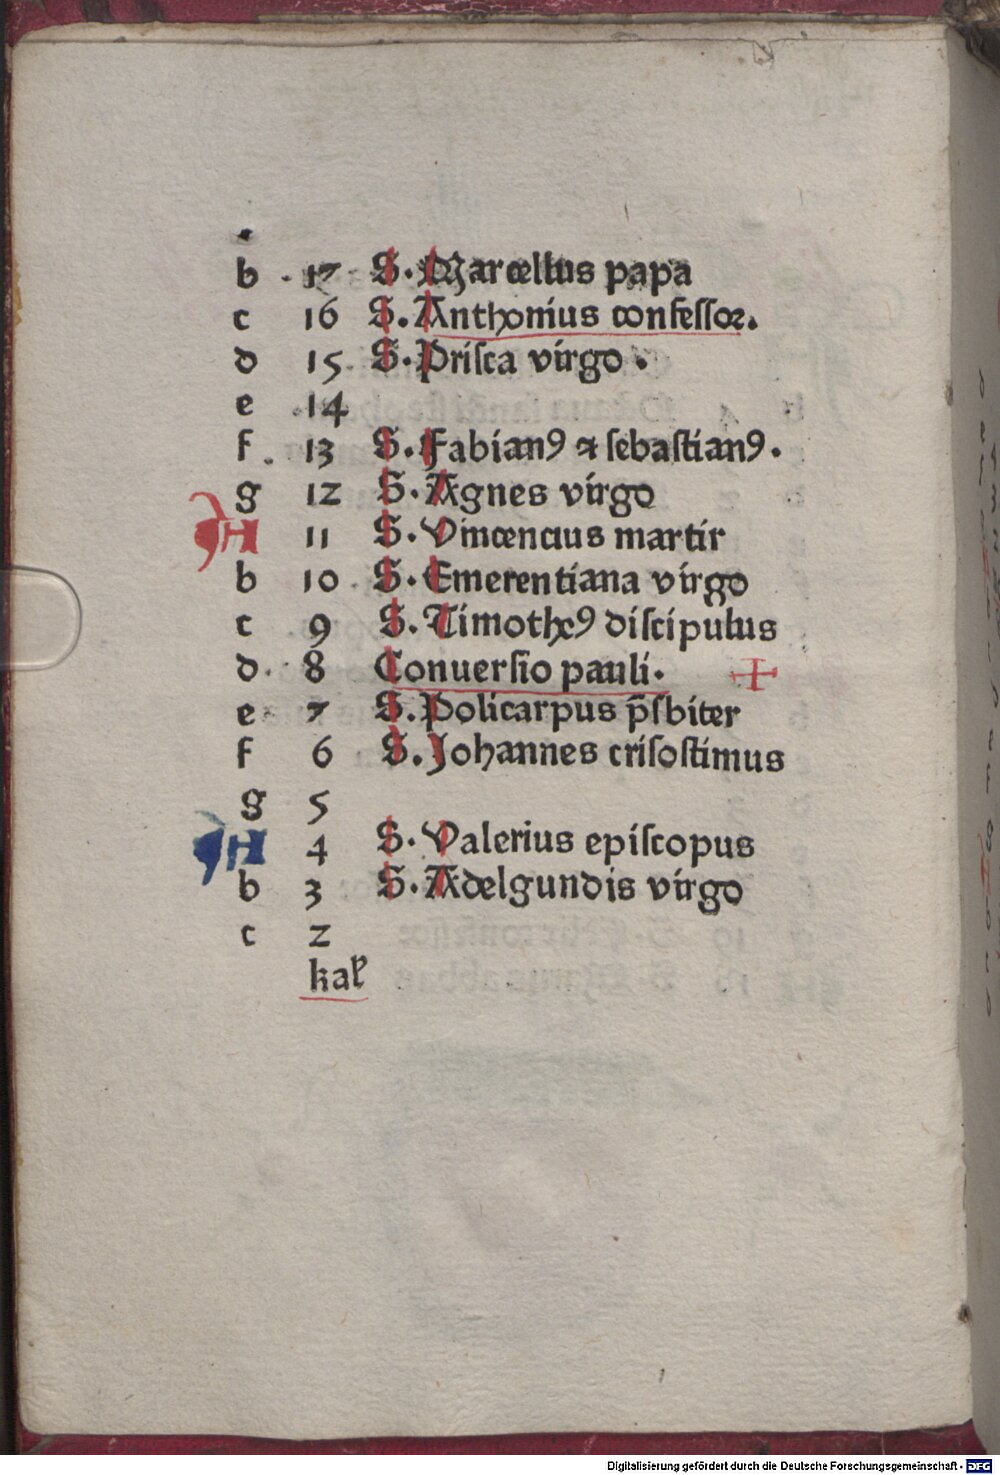 b 17 S. Marcellus papa
c 16 S. Anthonius confessor.
d 15 S. Prisca virgo.
e 14
f 13 S. Fabianꝰ ⁊ sebastianꝰ.
g 12 S. Agnes virgo
A 11 S. Vincencius martir
b 10 S. Emerentiana virgo
c 9 S. Timotheꝰ discipulus
d 8 Conuersio pauli. +
e 7 S. Policarpus p̄sbiter
f 6 S. Johannes crisostimus
g 5
A 4 S. Valerius episcopus
b 3 S. Adelgundis virgo
c 2
kal
Digitalisierung gefördert durch die Deutsche Forschungsgemeinschaft - DFG